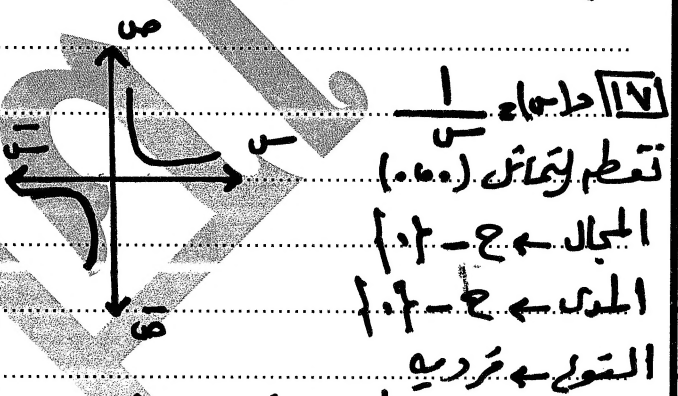 ١٧ د(س) = ١/س
نقطة التماثل (٠،٠)
المجال ← ح - {٠}
المدى ← ح - {٠}
النوع ← فردية
ص
س
سَ
صَ